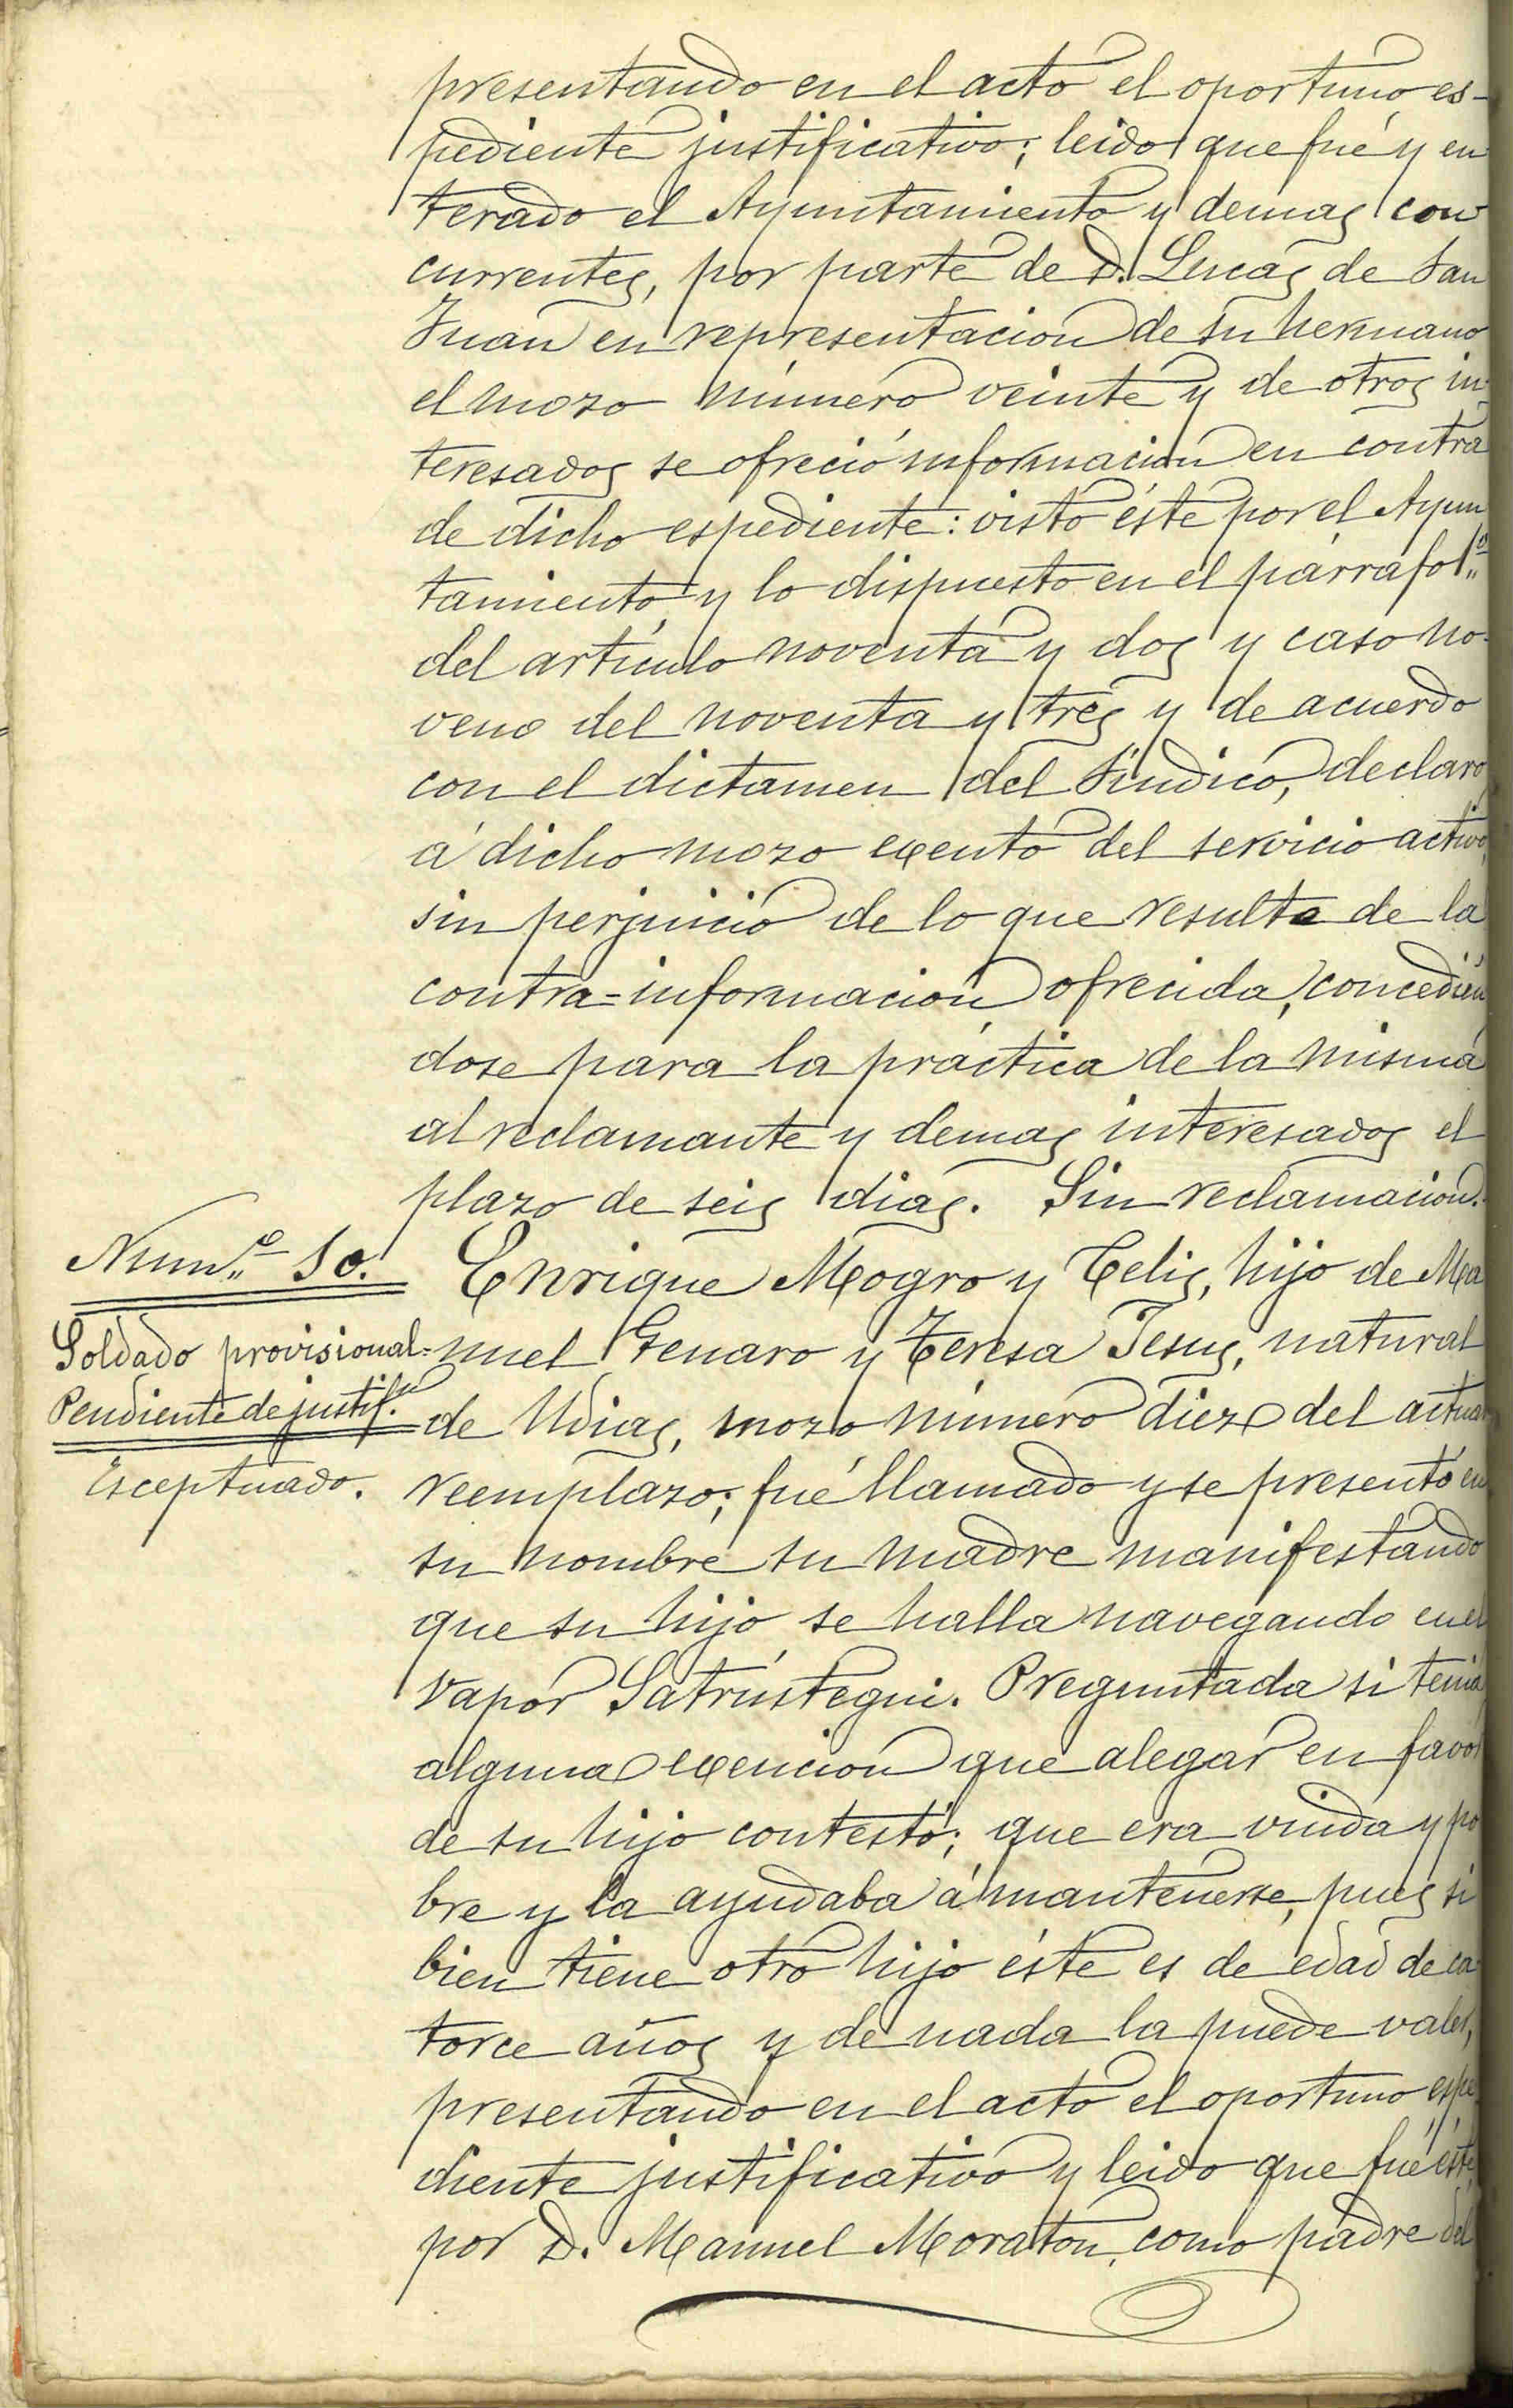 presentando en el acto el oportuno es-
pediente justificativo; leido que fué y en
terado el Ayuntamiento y demas con
currentes, por parte de D. Lucas de San
Juan en representacion de su hermano
el mozo número veinte y de otros in-
teresados se ofreció informacion en contra
de dicho espediente: visto éste por el Ayun
tamiento y lo dispuesto en el párrafo 1.º
del artículo noventa y dos y caso no-
veno del noventa y tres y de acuerdo
con el dictamen del Síndico, declaro
á dicho mozo exento del servicio activo,
sin perjuicio de lo que resulte de la
contra-informacion ofrecida, concedién
dose para la práctica de la misma
al reclamante y demas interesados el
plazo de seis dias. Sin reclamacion.
Num.º 10.
Enrique Mogro y Telis, hijo de Ma
Soldado provisional-
nuel Genaro y Teresa Jesus, natural
Pendiente de justif.n
de Udias, mozo número diez del actual
Esceptuado.
reemplazo; fué llamado y se presentó en
su nombre su madre manifestando
que su hijo se halla navegando en el
vapor Satrústegui. Preguntada si tenia
alguna exencion que alegar en favor
de su hijo contestó; que era viuda y po
bre y la ayudaba á mantenerse, pues si
bien tiene otro hijo éste es de edad de ca
torce años y de nada la puede valer,
presentando en el acto el oportuno espe
diente justificativo y leido que fué éste,
por D. Manuel Moraton, como padre del